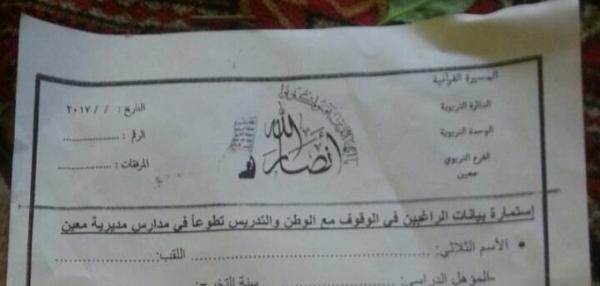 المسيرة القرآنية
الدائرة التربوية
الوحدة التربوية
الفرع التربوي
معين
أنصار الله
التاريخ : / / ٢٠١٧
الرقم : ..................
المرفقات : ..................
إستمارة بيانات الراغبين في الوقوف مع الوطن والتدريس تطوعاً في مدارس مديرية معين
• الأسم الثلاثي: .......................................... اللقب: ..................
-المؤهل الدراسي: .......................... سنة التخرج: